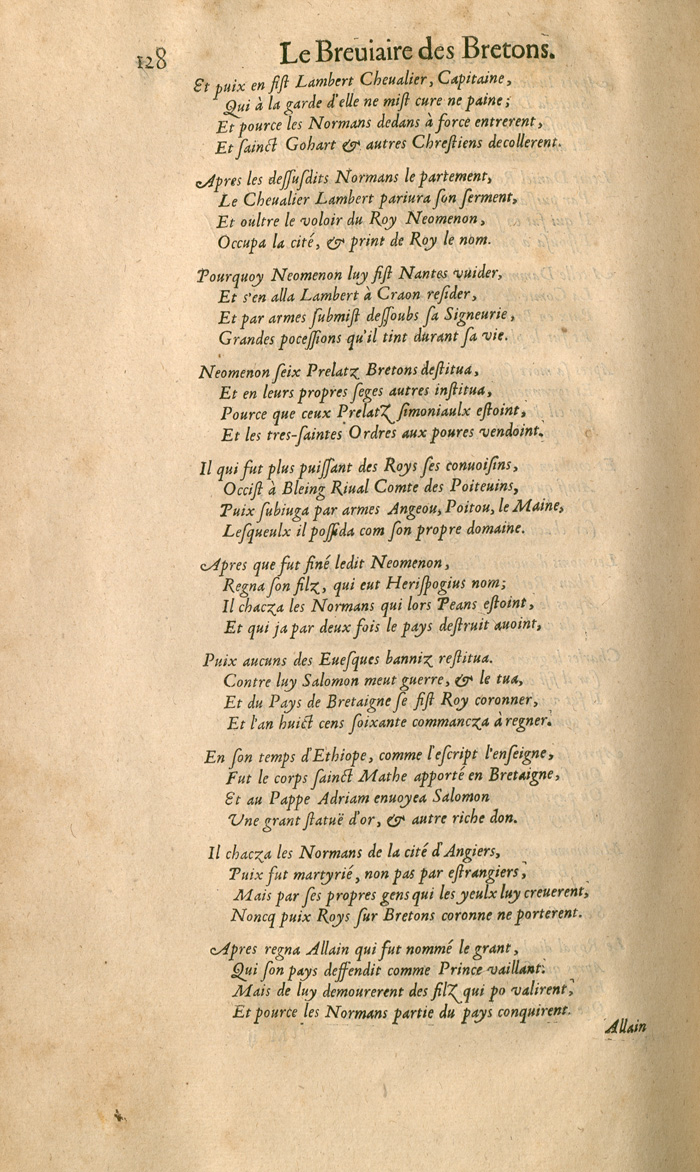 128 Le Breuiaire des Bretons.
Et puix en fiſt Lambert Cheualier, Capitaine,
Qui à la garde d'elle ne miſt cure ne paine;
Et pource les Normans dedans à force entrerent,
Et ſainct Gohart & autres Chreſtiens decollerent.
Apres les deſſuſdits Normans le partement,
Le Cheualier Lambert pariura ſon ſerment,
Et oultre le voloir du Roy Neomenon,
Occupa la cité, & print de Roy le nom.
Pourquoy Neomenon luy fiſt Nantes vuider,
Et s'en alla Lambert à Craon reſider,
Et par armes ſubmiſt deſſoubs ſa Signeurie,
Grandes poceſſions qu'il tint durant ſa vie.
Neomenon ſeix Prelatz Bretons deſtitua,
Et en leurs propres ſeges autres inſtitua,
Pource que ceux Prelatz ſimoniaulx eſtoint,
Et les tres-ſaintes Ordres aux poures vendoint.
Il qui fut plus puiſſant des Roys ſes conuoiſins,
Occiſt à Bleing Riual Comte des Poiteuins,
Puix ſubiuga par armes Angeou, Poitou, le Maine,
Leſqueulx il poſſida com ſon propre domaine.
Apres que fut finé ledit Neomenon,
Regna ſon filz, qui eut Heriſpogius nom;
Il chacza les Normans qui lors Peans eſtoint,
Et qui ja par deux fois le pays deſtruit auoint,
Puix aucuns des Eueſques banniz reſtitua.
Contre luy Salomon meut guerre, & le tua,
Et du Pays de Bretaigne ſe fiſt Roy coronner,
Et l'an huict cens ſoixante commancza à regner.
En ſon temps d'Ethiope, comme l'eſcript l'enſeigne,
Fut le corps ſainct Mathe apporté en Bretaigne,
Et au Pappe Adriam enuoyea Salomon
Une grant ſtatuë d'or, & autre riche don.
Il chacza les Normans de la cité d'Angiers,
Puix fut martyrié, non pas par eſtrangiers,
Mais par ſes propres gens qui les yeulx luy creuerent,
Noncq puix Roys ſur Bretons coronne ne porterent.
Apres regna Allain qui fut nommé le grant,
Qui ſon pays deffendit comme Prince vaillant:
Mais de luy demourerent des filz qui po valirent,
Et pource les Normans partie du pays conquirent.
Allain